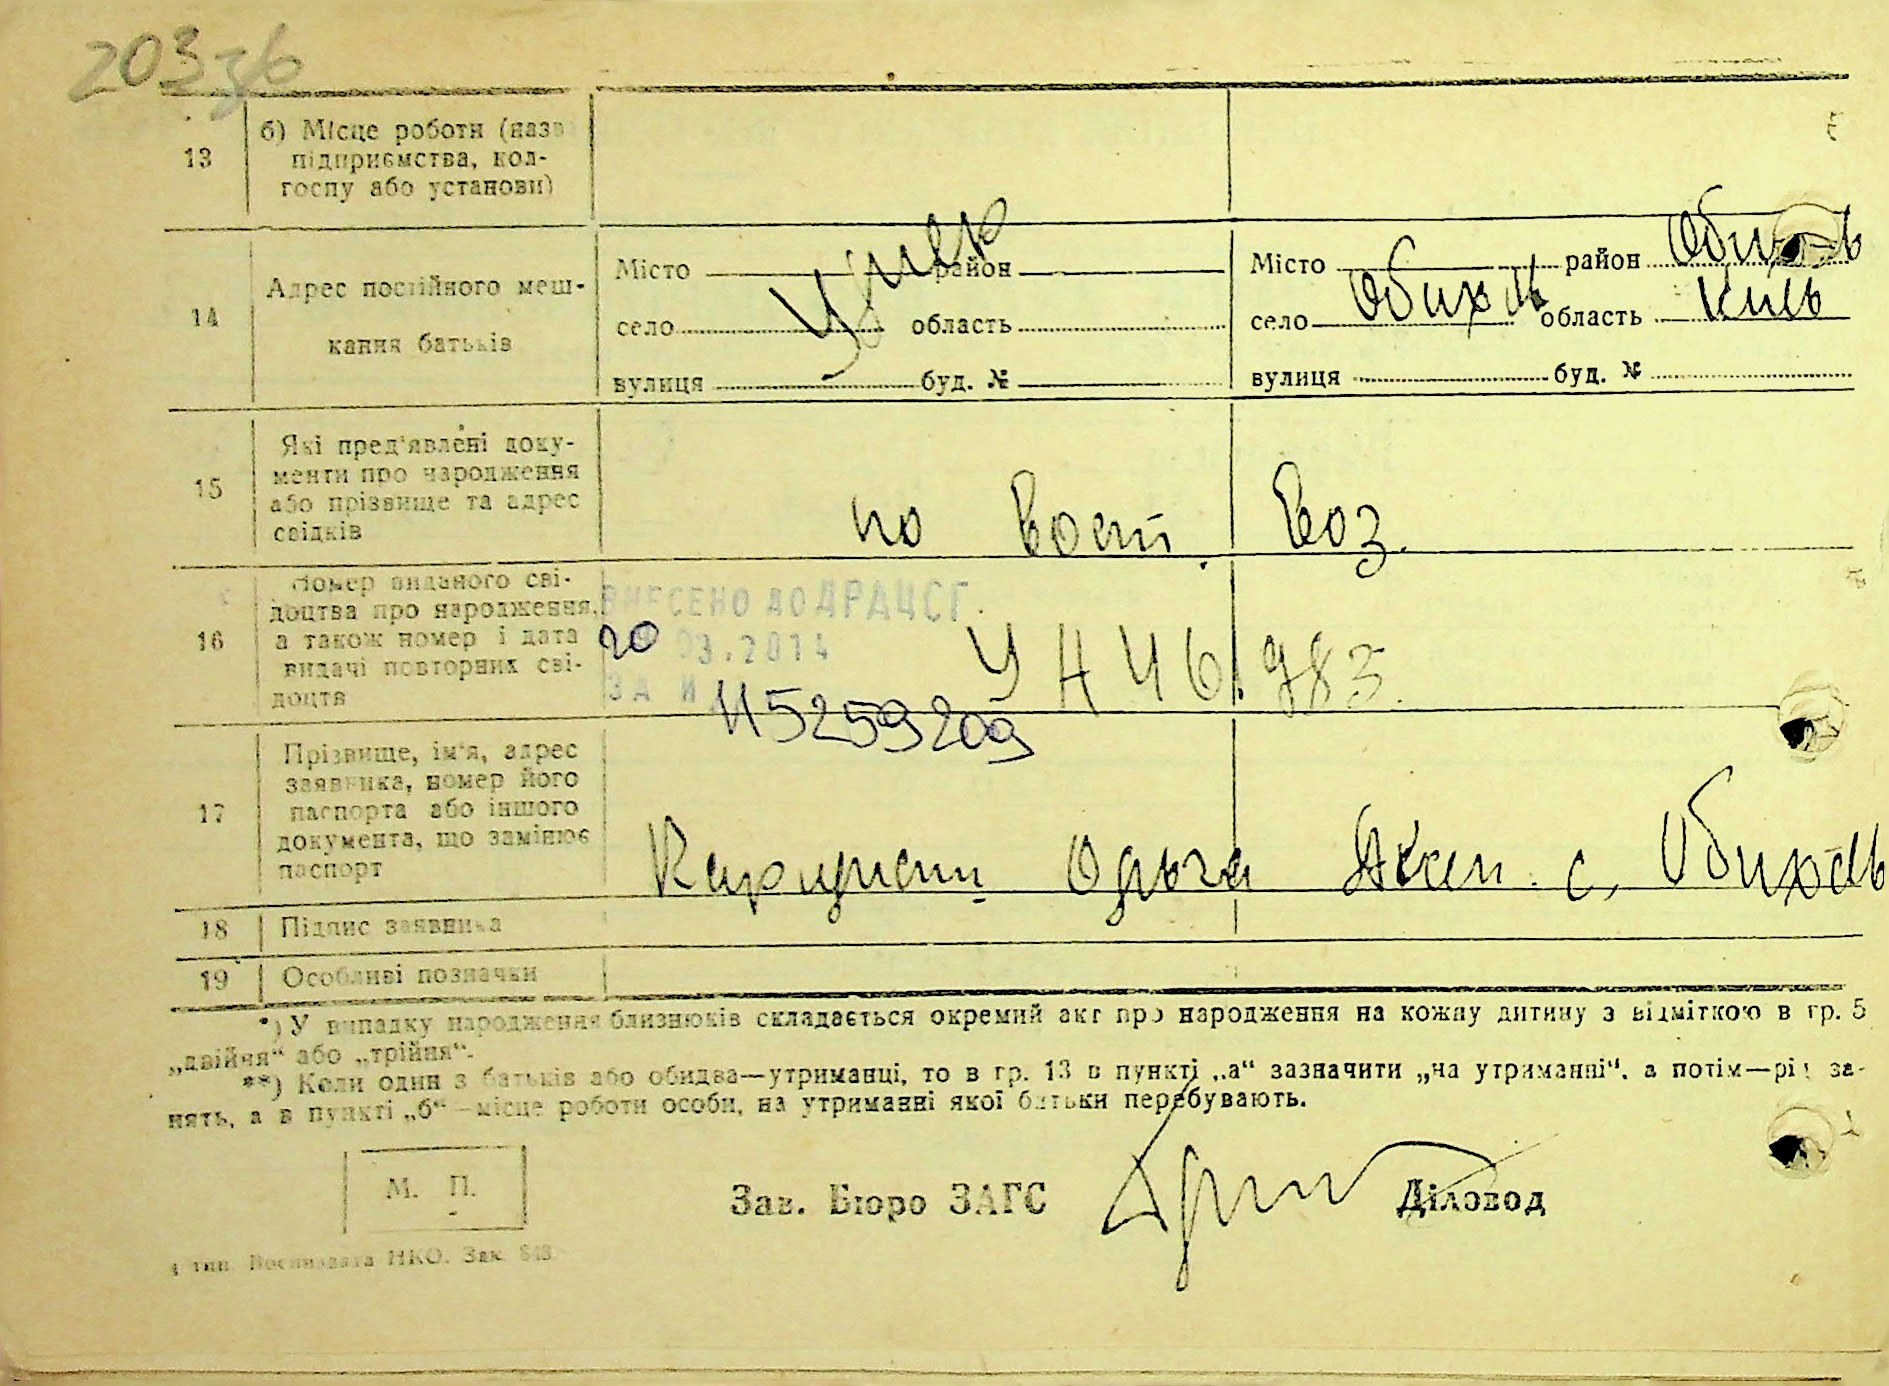 203зб
13
б) Місце роботи (назв
підприємства, кол-
госпу або установи)
14
Адрес постійного меш-
кання батьків
Місто район
село область
вулиця буд. №
Умер
Місто район Обихів
село Обихів область Київ
вулиця буд. №
15
Які пред'явлені доку-
менти про народження
або прізвище та адрес
свідків
по Вост Воз.
16
Номер виданого сві-
доцтва про народження,
а також номер і дата
видачі повторних сві-
доцтв
ВНЕСЕНО ДО ДРАЦСГ
20 03.2014
ЗА
115259209
983.
17
Прізвище, ім'я, адрес
заявника, номер його
паспорта або іншого
документа, що замінює
паспорт
с.
18 Підпис заявника
19 Особливі позначки
*) У випадку народження близнюків складається окремий акт про народження на кожну дитину з відміткою в гр. 5
„двійня“ або „трійня“.
**) Коли один з батьків або обидва—утриманці, то в гр. 13 в пункті „а“ зазначити „на утриманні“, а потім—рід за-
нять, а в пункті „б“—місце роботи особи, на утриманні якої батьки перебувають.
М. П.
Зав. Бюро ЗАГС Діловод
тип. Воениздата НКО. Зак. 843